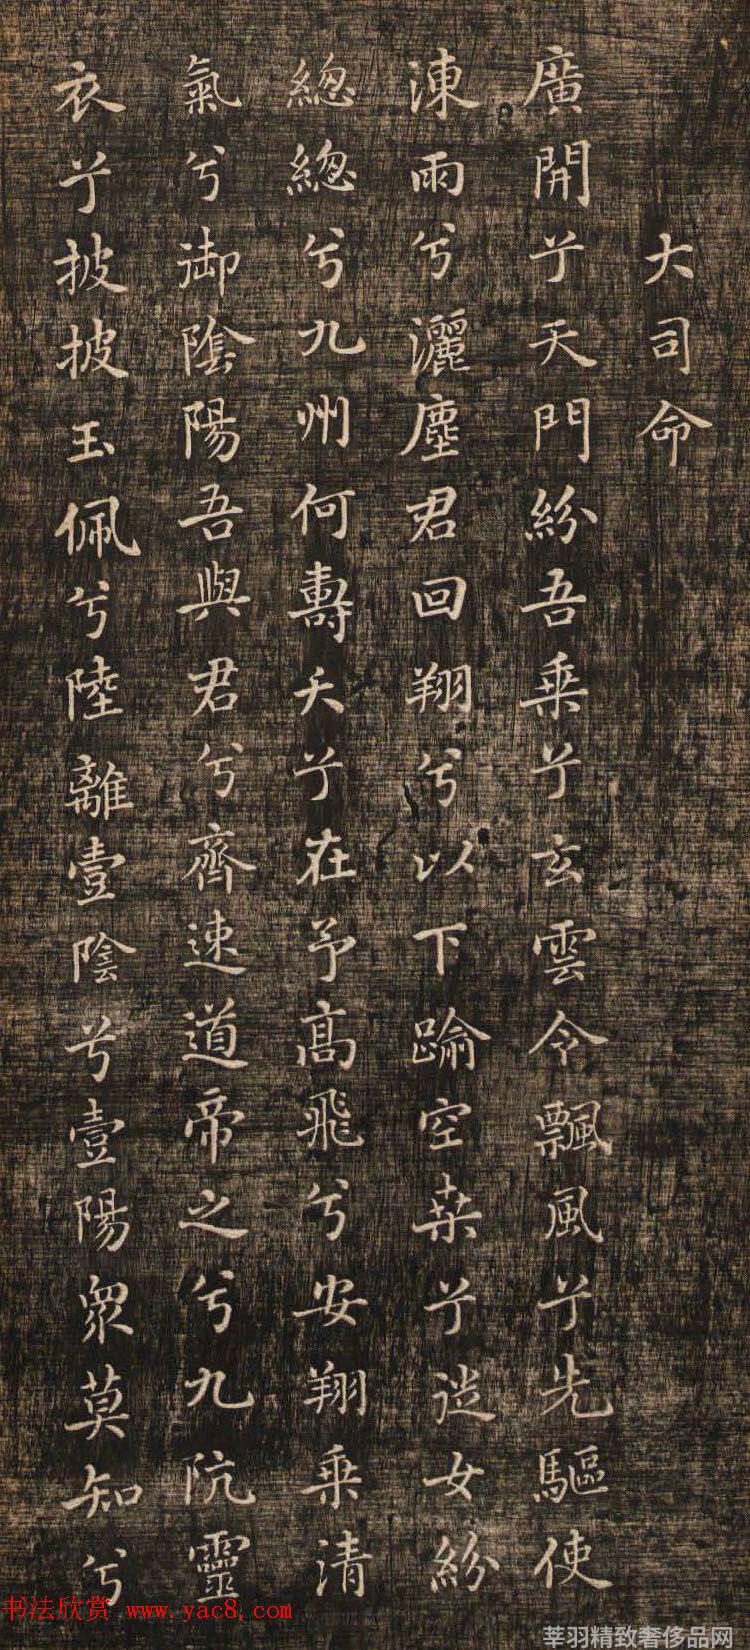 大司命
廣開兮天門紛吾乘兮玄雲令飄風兮先驅使
涷雨兮灑塵君回翔兮以下踰空桒兮從女紛
緫緫兮九州何壽夭兮在予高飛兮安翔乘清
氣兮御陰陽吾與君兮齊速道帝之兮九阬靈
衣兮披披玉佩兮陸離壹陰兮壹陽眾莫知兮
书法欣赏 www.yac8.com
莘羽精致奢侈品网